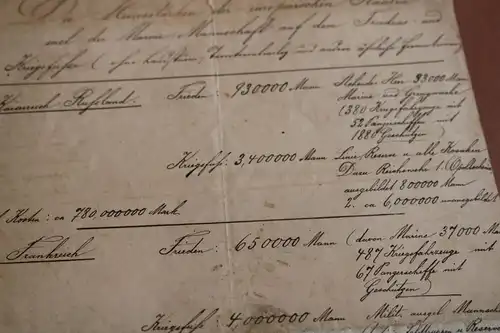 Die Heeresstärken der europäischen Staaten
und der Marine Mannschaft auf dem Friedens und
Kriegsfusse (ohne Landsturm, und andere ähnliche Formationen)
Kaiserreich Rußland. Frieden: 930000 Mann Stehendes Heer 33000 Mann
Marine und Grenzwache
(380 Kriegsfahrzeuge mit
52 Panzerschiffen mit
1880 Geschützen)
Kriegsfuss: 3,400000 Mann Linie Reserve u. alle Kosaken
Dazu Reichswehr 1.
ausgebildet 800000 Mann
2. ca 6,000000 unausgebildet
Kosten: ca 780,000000 Mark.
Frankreich Frieden: 650000 Mann (davon Marine 37000 Mann
487 Kriegsfahrzeuge mit
67 Panzerschiffe mit
Geschützen)
Kriegsfuss: 4,000000 Mann Milit. ausgeb. Mannsch
u Reserv